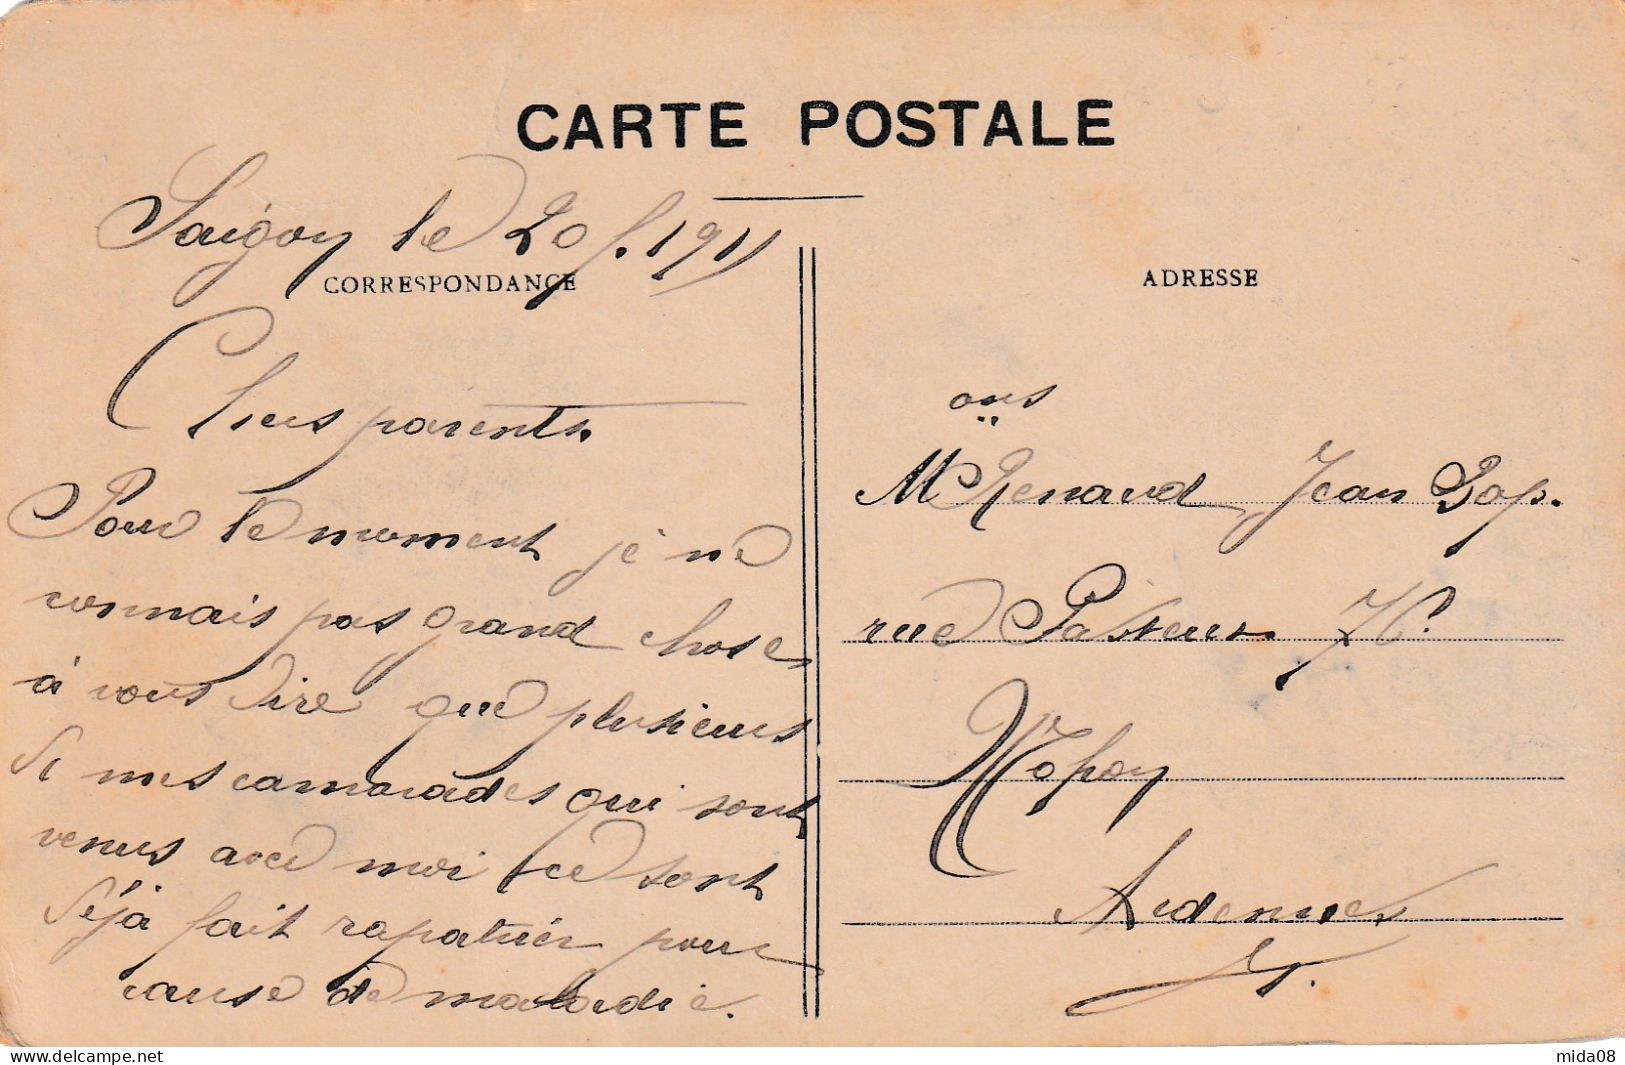 CARTE POSTALE
Saigon le 20 f. 1911
CORRESPONDANCE
Chers parents
Pour le moment je ne
connais pas grand chose
à vous dire que plusieurs
de mes camarades qui sont
venus avec moi ce sont
déjà fait rapatrier pour
cause de maladie.
ADRESSE
M Renaud Jean Bap.
rue Pasteur
Ardennes
mida08